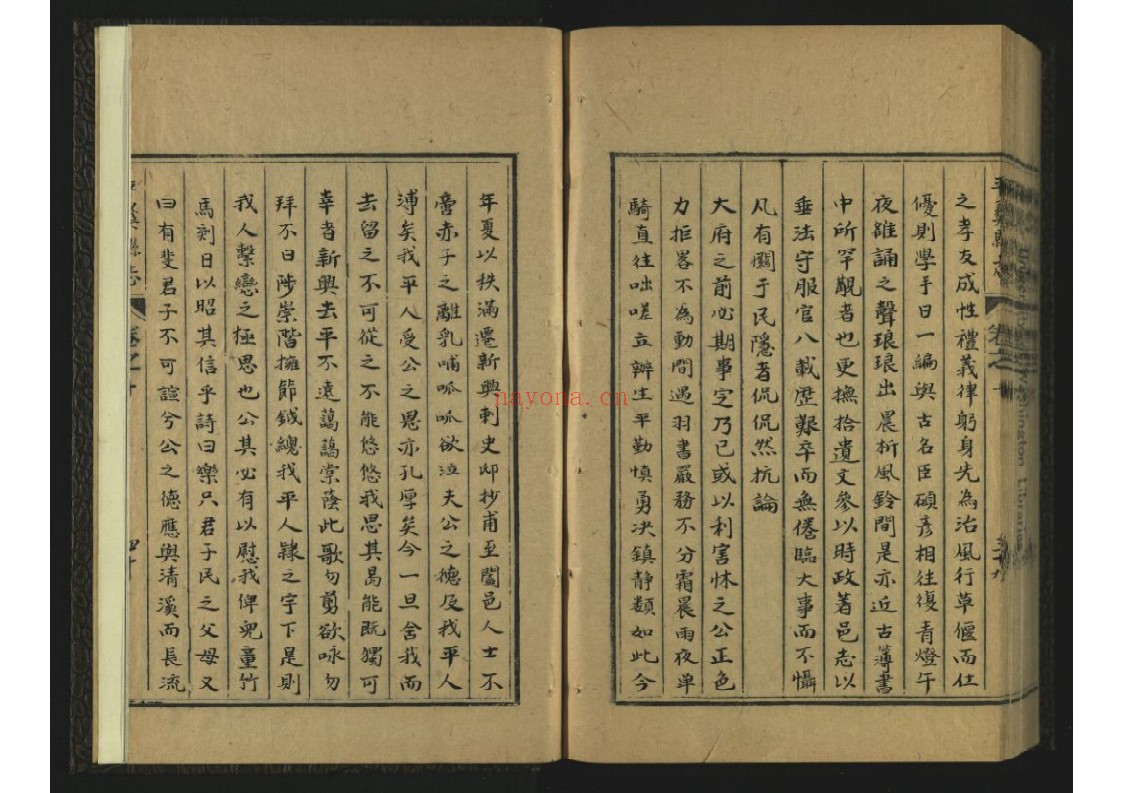 之孝友成性禮義律躬身先為治風行草偃而仕
優則學手日一編與古名臣碩彥相往復青燈午
夜雒誦之聲琅琅出晨析風鈴間是亦近古簿書
中所罕覯者也更撫拾遺文參以時政著邑志以
垂法守服官八載歷艱卒而無倦臨大事而不懾
凡有關于民隱者侃侃然抗論
大府之前必期事定乃已或以利害怵之公正色
力拒畧不為動間遇羽書嚴務不分霜晨雨夜单
騎直往咄嗟立辦生平勤慎勇决鎮静類如此今
年夏以秩滿遷新興刺史邸抄甫至闔邑人士不
啻赤子之離乳哺呱呱欲泣夫公之德及我平人
溥矣我平人受公之恩亦孔厚矣今一旦舍我而
去留之不可從之不能悠悠我思其曷能既獨可
幸者新興去平不遠藹藹棠蔭此歌勿剪欲咏勿
拜不日陟崇階擁節鉞總我平人隸之宇下是則
我人繫戀之極思也公其必有以慰我俾兒童竹
馬刻日以昭其信乎詩曰樂只君子民之父母又
曰有斐君子不可諠兮公之德應與清溪而長流
縣志
卷之十
四十
nayona.cn